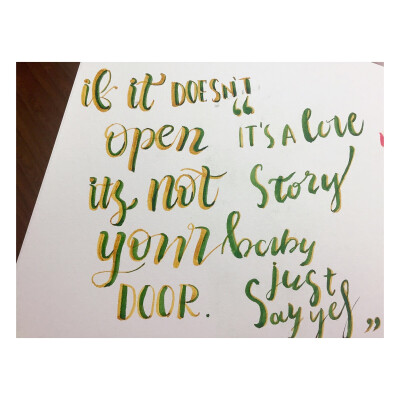 if it DOESN'T
open
its not
your
DOOR.
“
IT'S A love
Story
baby
just
Say yes
”